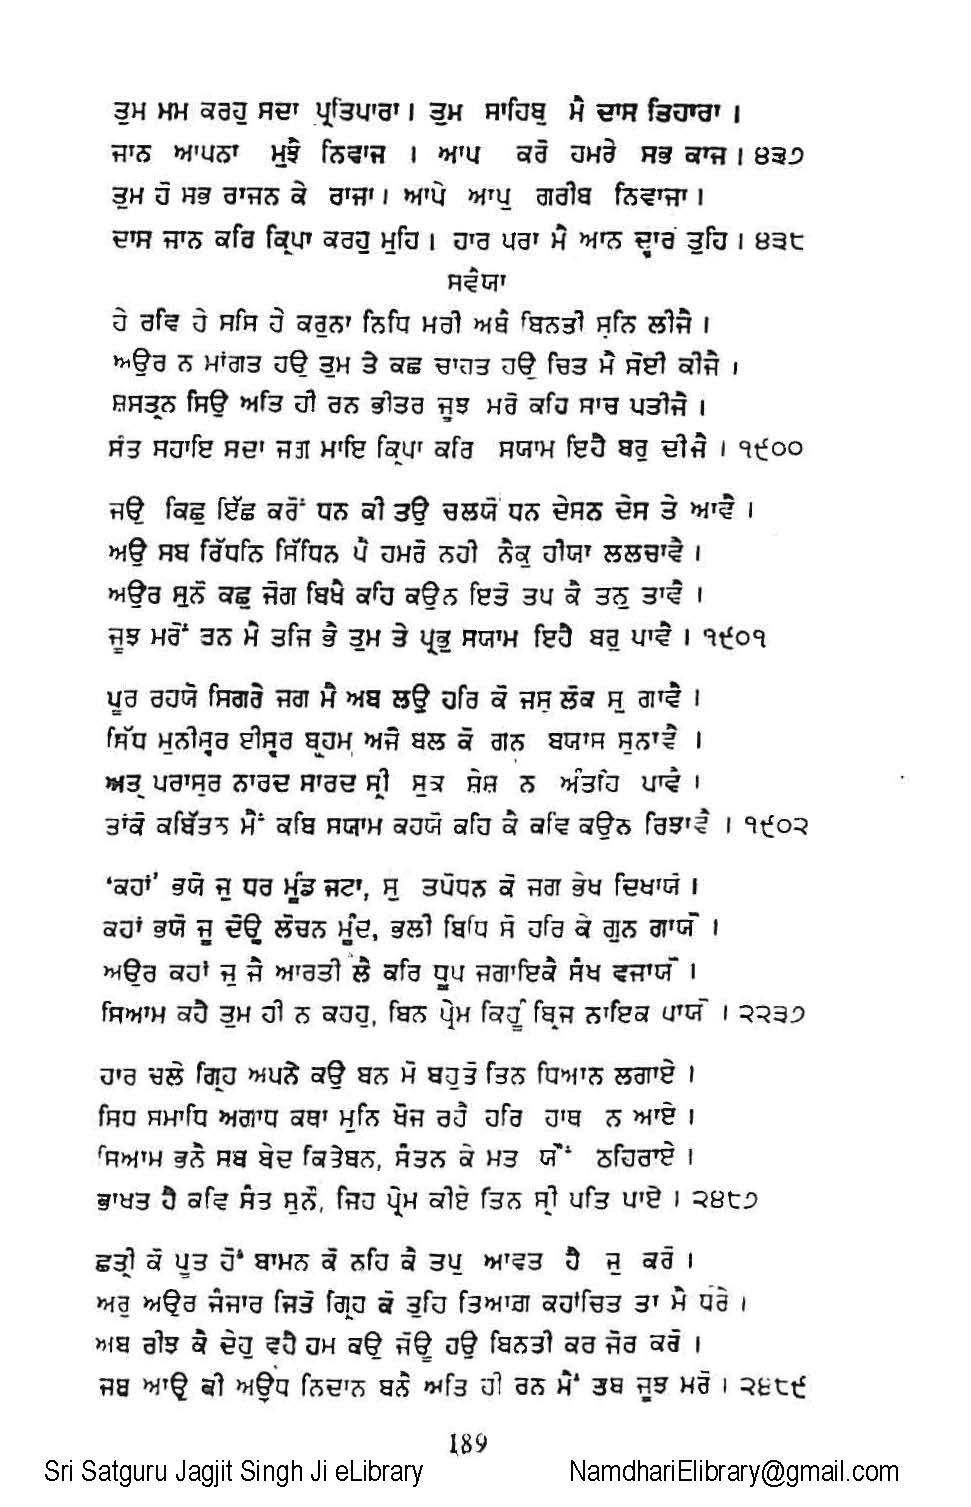 ਤੁਮ ਮਮ ਕਰਹੁ ਸਦਾ ਪ੍ਰਤਿਪਾਰਾ। ਤੁਮ ਸਾਹਿਬੁ ਮੈ ਦਾਸ ਤਿਹਾਰਾ।
ਜਾਨ ਆਪਨਾ ਮੁਝੈ ਨਿਵਾਜ । ਆਪ ਕਰੋ ਹਮਰੇ ਸਭ ਕਾਜ। ੪੩੭
ਤੁਮ ਹੋ ਸਭ ਰਾਜਨ ਕੇ ਰਾਜਾ। ਆਪੇ ਆਪੁ ਗਰੀਬ ਨਿਵਾਜਾ।
ਦਾਸ ਜਾਨ ਕਰਿ ਕ੍ਰਿਪਾ ਕਰਹੁ ਮੁਹਿ। ਹਾਰ ਪਰਾ ਮੈ ਆਨ ਦ੍ਵਾਰ ਤੁਹਿ। ੪੩੮
ਸਵੈਯਾ
ਹੇ ਰਵਿ ਹੇ ਸਸਿ ਹੇ ਕਰੁਨਾ ਨਿਧਿ ਮਰੀ ਅਬੈ ਬਿਨਤੀ ਸੁਨਿ ਲੀਜੈ।
ਅਉਰ ਨ ਮਾਂਗਤ ਹਉ ਤੁਮ ਤੇ ਕਛ ਚਾਹਤ ਹਉ ਚਿਤ ਮੈ ਸੋਈ ਕੀਜੈ।
ਸ਼ਸਤ੍ਰਨ ਸਿਉ ਅਤਿ ਹੀ ਰਨ ਭੀਤਰ ਜੂਝ ਮਰੋ ਕਹਿ ਸਾਚ ਪਤੀਜੈ।
ਸੰਤ ਸਹਾਇ ਸਦਾ ਜਗ ਮਾਇ ਕ੍ਰਿਪਾ ਕਰਿ ਸਯਾਮ ਇਹੈ ਬਰੁ ਦੀਜੈ। ੧੯੦੦
ਜਉ ਕਿਛੁ ਇੱਛ ਕਰੋਂ ਧਨ ਕੀ ਤਉ ਚਲਯੋ ਧਨ ਦੇਸਨ ਦੇਸ ਤੇ ਆਵੈ।
ਅਉ ਸਬ ਰਿੱਧਨਿ ਸਿੱਧਿਨ ਪੈ ਹਮਰੋ ਨਹੀ ਨੈਕੁ ਹੀਯਾ ਲਲਚਾਵੈ।
ਅਉਰ ਸੁਨੋ ਕਛੁ ਜੋਗ ਬਿਖੈ ਕਹਿ ਕਉਨ ਇਤੋ ਤਪ ਕੈ ਤਨੁ ਤਾਵੈ।
ਜੂਝ ਮਰੋਂ ਰਨ ਮੈ ਤਜਿ ਭੈ ਤੁਮ ਤੇ ਪ੍ਰਭੁ ਸਯਾਮ ਇਹੈ ਬਰੁ ਪਾਵੈ। ੧੯੦੧
ਪੂਰ ਰਹਯੋ ਸਿਗਰੇ ਜਗ ਮੈ ਅਬ ਲਉ ਹਰਿ ਕੋ ਜਸੁ ਲੋਕ ਸੁ ਗਾਵੈ।
ਸਿੱਧ ਮੁਨੀਸ੍ਵਰ ਈਸ੍ਵਰ ਬ੍ਰਹਮ ਅਜੈ ਬਲ ਕੋ ਗੁਨ ਬਯਾਸ ਸੁਨਾਵੈ।
ਅਤ੍ਰ ਪਰਾਸੁਰ ਨਾਰਦ ਸਾਰਦ ਸ੍ਰੀ ਸੁਕ ਸ਼ੇਸ਼ ਨ ਅੰਤਹਿ ਪਾਵੈ।
ਤਾਂਕੋ ਕਬਿੱਤਨ ਮੈਂ ਕਬਿ ਸਯਾਮ ਕਹਯੋ ਕਹਿ ਕੈ ਕਵਿ ਕਉਨ ਰਿਝਾਵੈ। ੧੯੦੨
‘ਕਹਾਂ’ ਭਯੋ ਜੁ ਧਰ ਮੂੰਡ ਜਟਾ, ਸੁ ਤਪੋਧਨ ਕੋ ਜਗ ਭੇਖ ਦਿਖਾਯੋ।
ਕਹਾਂ ਭਯੋ ਜੂ ਦੋਊ ਲੋਚਨ ਮੂੰਦ, ਭਲੀ ਬਿਧਿ ਸੋ ਹਰਿ ਕੇ ਗੁਨ ਗਾਯੋ।
ਅਉਰ ਕਹਾਂ ਜੁ ਜੈ ਆਰਤੀ ਲੈ ਕਰਿ ਧੂਪ ਜਗਾਇਕੈ ਸੰਖ ਵਜਾਯੋ।
ਸਿਆਮ ਕਹੈ ਤੁਮ ਹੀ ਨ ਕਹਹੁ, ਬਿਨ ਪ੍ਰੇਮ ਕਿਹੂੰ ਬ੍ਰਿਜ ਨਾਇਕ ਪਾਯੋ। ੨੨੩੭
ਹਾਰ ਚਲੇ ਗ੍ਰਿਹ ਅਪਨੇ ਕਉ ਬਨ ਮੋ ਬਹੁਤੋ ਤਿਨ ਧਿਆਨ ਲਗਾਏ।
ਸਿਧ ਸਮਾਧਿ ਅਗਾਧ ਕਥਾ ਮੁਨਿ ਖੋਜ ਰਹੈ ਹਰਿ ਹਾਥ ਨ ਆਏ।
ਸਿਆਮ ਭਨੈ ਸਬ ਬੇਦ ਕਿਤੇਬਨ, ਸੰਤਨ ਕੇ ਮਤ ਯੌਂ ਠਹਿਰਾਏ।
ਭਾਖਤ ਹੈ ਕਵਿ ਸੰਤ ਸੁਨੌ, ਜਿਹ ਪ੍ਰੇਮ ਕੀਏ ਤਿਨ ਸ੍ਰੀ ਪਤਿ ਪਾਏ। ੨੪੮੭
ਛਤ੍ਰੀ ਕੋ ਪੂਤ ਹੋਂ ਬਾਮਨ ਕੋ ਨਹਿ ਕੈ ਤਪੁ ਆਵਤ ਹੈ ਜੁ ਕਰੋ।
ਅਰੁ ਅਉਰ ਜੰਜਾਰ ਜਿਤੋ ਗ੍ਰਿਹ ਕੋ ਤੁਹਿ ਤਿਆਗ਼ ਕਹਾਂਚਿਤ ਤਾ ਮੈ ਧਰੋ।
ਅਬ ਰੀਝ ਕੈ ਦੇਹੁ ਵਹੈ ਹਮ ਕਉ ਜੋਊ ਹਉ ਬਿਨਤੀ ਕਰ ਜੋਰ ਕਰੋ।
ਜਬ ਆਉ ਕੀ ਅਉਧ ਨਿਦਾਨ ਬਨੈ ਅਤਿ ਹੀ ਰਨ ਮੈਂ ਤਬ ਜੂਝ ਮਰੋ। ੨੪੮੯
189
Sri Satguru Jagjit Singh Ji eLibrary NamdhariElibrary@gmail.com